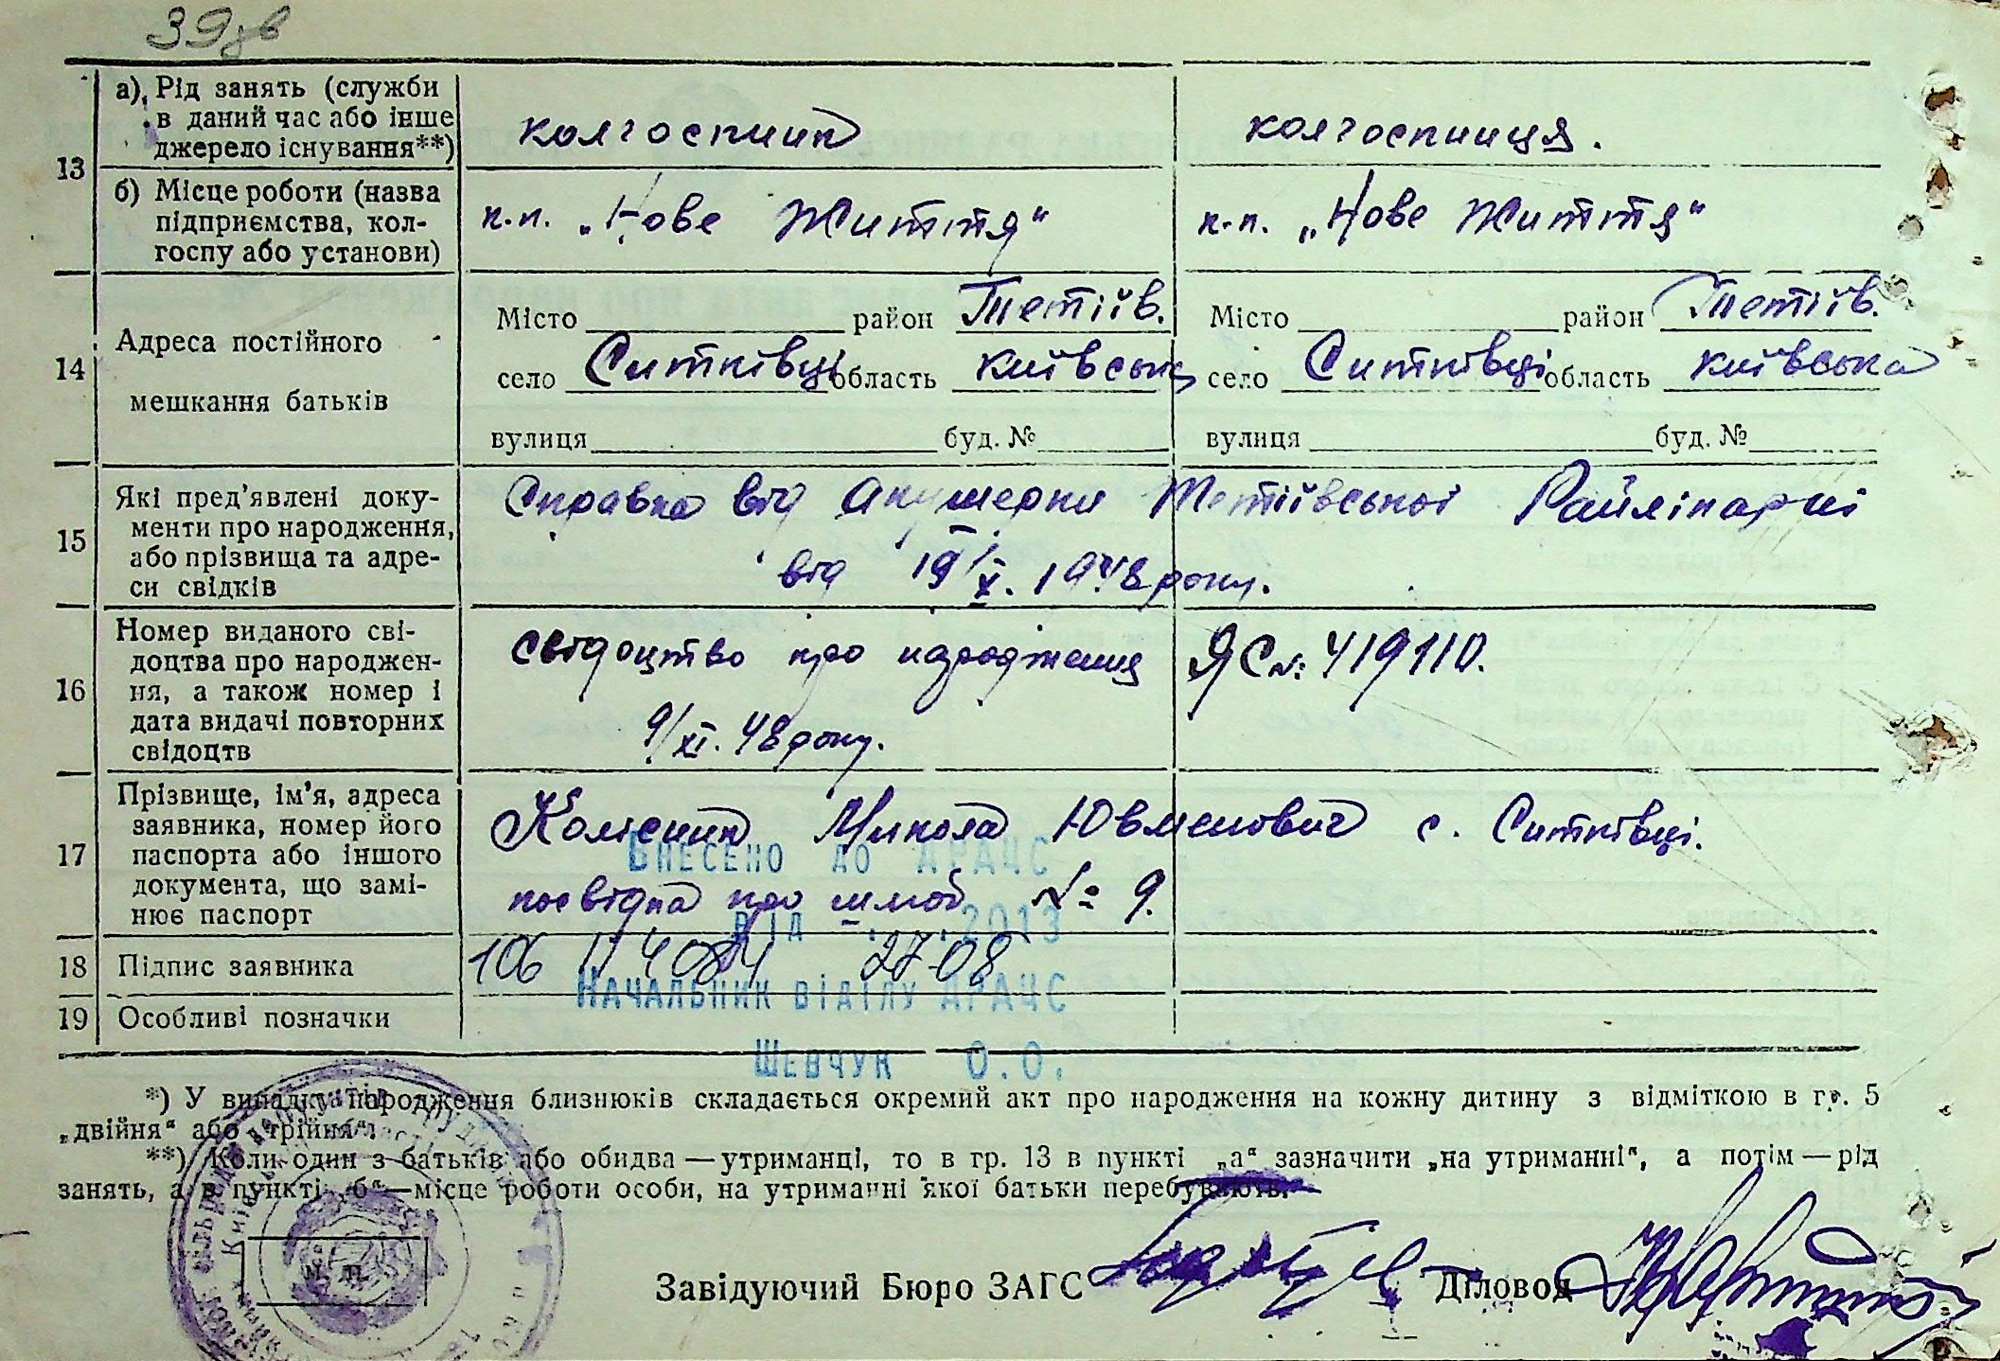 39 зв
13 а) Рід занять (служби в даний час або інше джерело існування**) колгоспник колгоспниця.
б) Місце роботи (назва підприємства, колгоспу або установи) к-п. „Нове Життя“ к-п. „Нове Життя“
14 Адреса постійного мешкання батьків
Місто район Тетіїв. Місто район Тетіїв.
село Ситківці область Київська село Ситківці область Київська
вулиця буд. № вулиця буд. №
15 Які пред’явлені документи про народження, або прізвища та адреси свідків
Справка від Акушерки Тетіївської Райлікарні
від 19/X. 1948 року.
16 Номер виданого свідоцтва про народження, а також номер і дата видачі повторних свідоцтв
свідоцтво про народження ЯС № 419110.
9/XI. 48 року.
17 Прізвище, ім’я, адреса заявника, номер його паспорта або іншого документа, що замінює паспорт
Колісник Микола Ювменович с. Ситківці.
Внесено до ДРАЦС
посвідка про шлюб № 9.
від 2013
18 Підпис заявника
106 27-08
Начальник відділу ДРАЦС
19 Особливі позначки
Шевчук О.О.
*) У випадку народження близнюків складається окремий акт про народження на кожну дитину з відміткою в гр. 5
„двійня“ або „трійня“.
**) Коли один з батьків або обидва — утриманці, то в гр. 13 в пункті „а“ зазначити „на утриманні“, а потім — рід
занять, а в пункті „б“ — місце роботи особи, на утриманні якої батьки перебувають.
Завідуючий Бюро ЗАГС Діловод